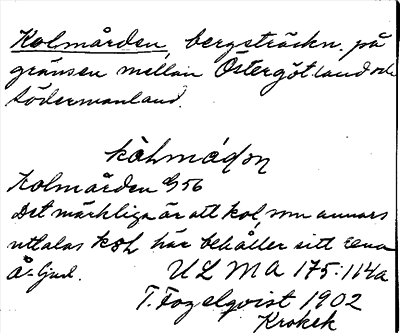 Kolmården, bergsträckn. på
gränsen mellan Östergötland och
Södermanland.
Kolmården 9/56
Det märkliga är att kol, som annars
uttalas här behåller sitt rena
Å-ljud. ULMA 175:114a
T. Fogelqvist 1902
Krokek